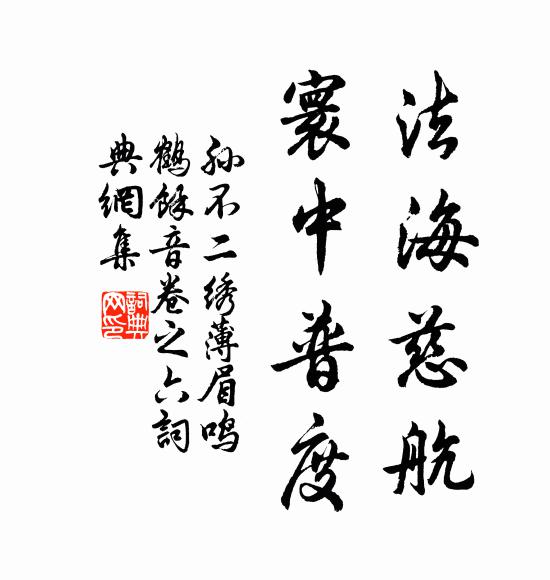 法海慈航
寰中普度
孙不二绣薄眉鸣
鹤馀音卷之六詞
典網集
詞典
网印